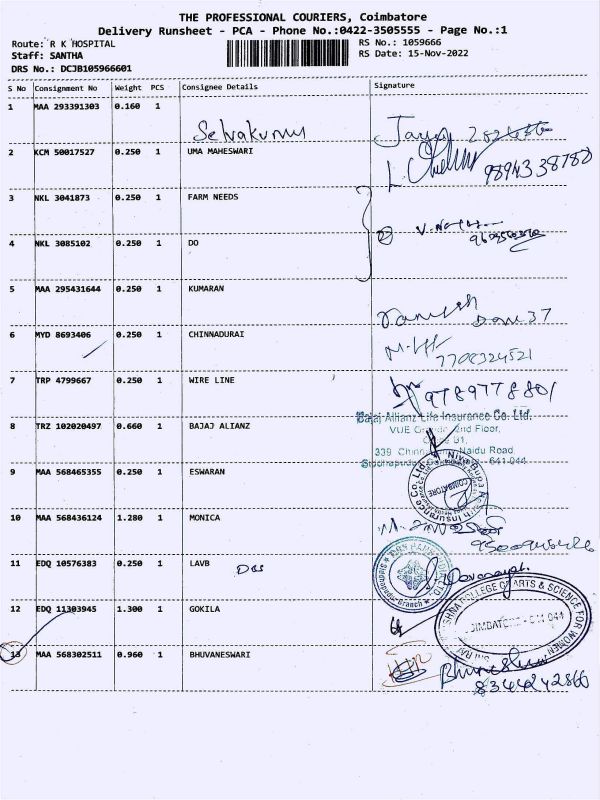 THE PROFESSIONAL COURIERS, Coimbatore
Delivery Runsheet - PCA - Phone No.:0422-3505555 - Page No.:1
Route: R K HOSPITAL
Staff: SANTHA
DRS No.: DCJB105966601
RS No.: 1059666
RS Date: 15-Nov-2022
S No Consignment No Weight PCS Consignee Details Signature
1 MAA 293391303 0.160 1
Selvakumar
2 KCM 50017527 0.250 1 UMA MAHESWARI
9894338780
3 NKL 3041873 0.250 1 FARM NEEDS
4 NKL 3085102 0.250 1 DO
5 MAA 295431644 0.250 1 KUMARAN
6 MYD 8693406 0.250 1 CHINNADURAI
7700324521
7 TRP 4799667 0.250 1 WIRE LINE
9789778801
8 TRZ 102020497 0.660 1 BAJAJ ALIANZ
Bajaj Allianz Life Insurance Co. Ltd.
2nd Floor,
339 Naidu Road,
641 044
9 MAA 568465355 0.250 1 ESWARAN
COIMBATORE
10 MAA 568436124 1.280 1 MONICA
11 EDQ 10576383 0.250 1 LAVB
DBS
Branch
12 EDQ 11303945 1.300 1 GOKILA
COLLEGE OF ARTS & SCIENCE FOR WOMEN
13 MAA 568302511 0.960 1 BHUVANESWARI
8344242860